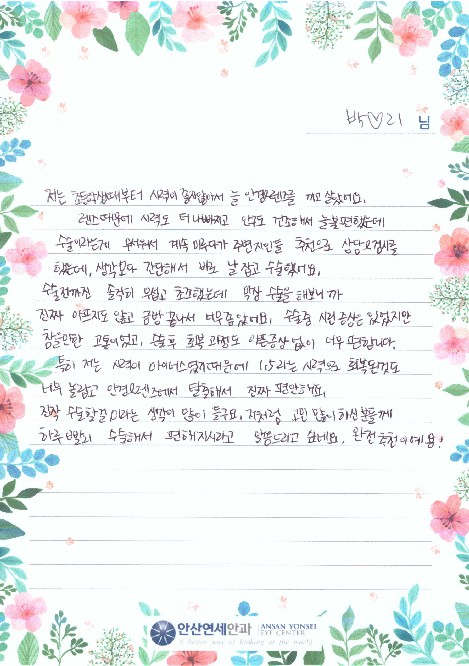 박♡리 님
저는 초등학생때부터 시력이 좋지않아서 늘 안경과 렌즈를 끼고 살았어요.
렌즈때문에 시력도 더 나빠지고 안구도 건조해서 늘 불편했는데
수술이라는게 무서워서 계속 미루다가 주변지인들 추천으로 상담 및 검사를
했는데, 생각보다 간단해서 바로 날 잡고 수술했어요.
수술전까진 솔직히 무섭고 초조했는데 막상 수술을 해보니까
진짜 아프지도 않고 금방 끝나서 너무좋았어요. 수술중 시린증상은 있었지만
참을만한 고통이었고, 수술후 회복 과정도 아픈증상 없이 너무 편합니다.
특히 저는 시력이 마이너스였기때문에 1.5라는 시력으로 회복된것도
너무 놀랍고 안경과 렌즈에서 탈출해서 진짜 편안해요.
진작 수술할걸 이라는 생각이 많이 들구요, 저처럼 고민 많으신 분들께
하루빨리 수술해서 편해지시라고 말씀드리고 싶네요. 완전 추천이예요!
안산연세안과 ANSAN YONSEI
EYE CENTER
A better way of looking at the world